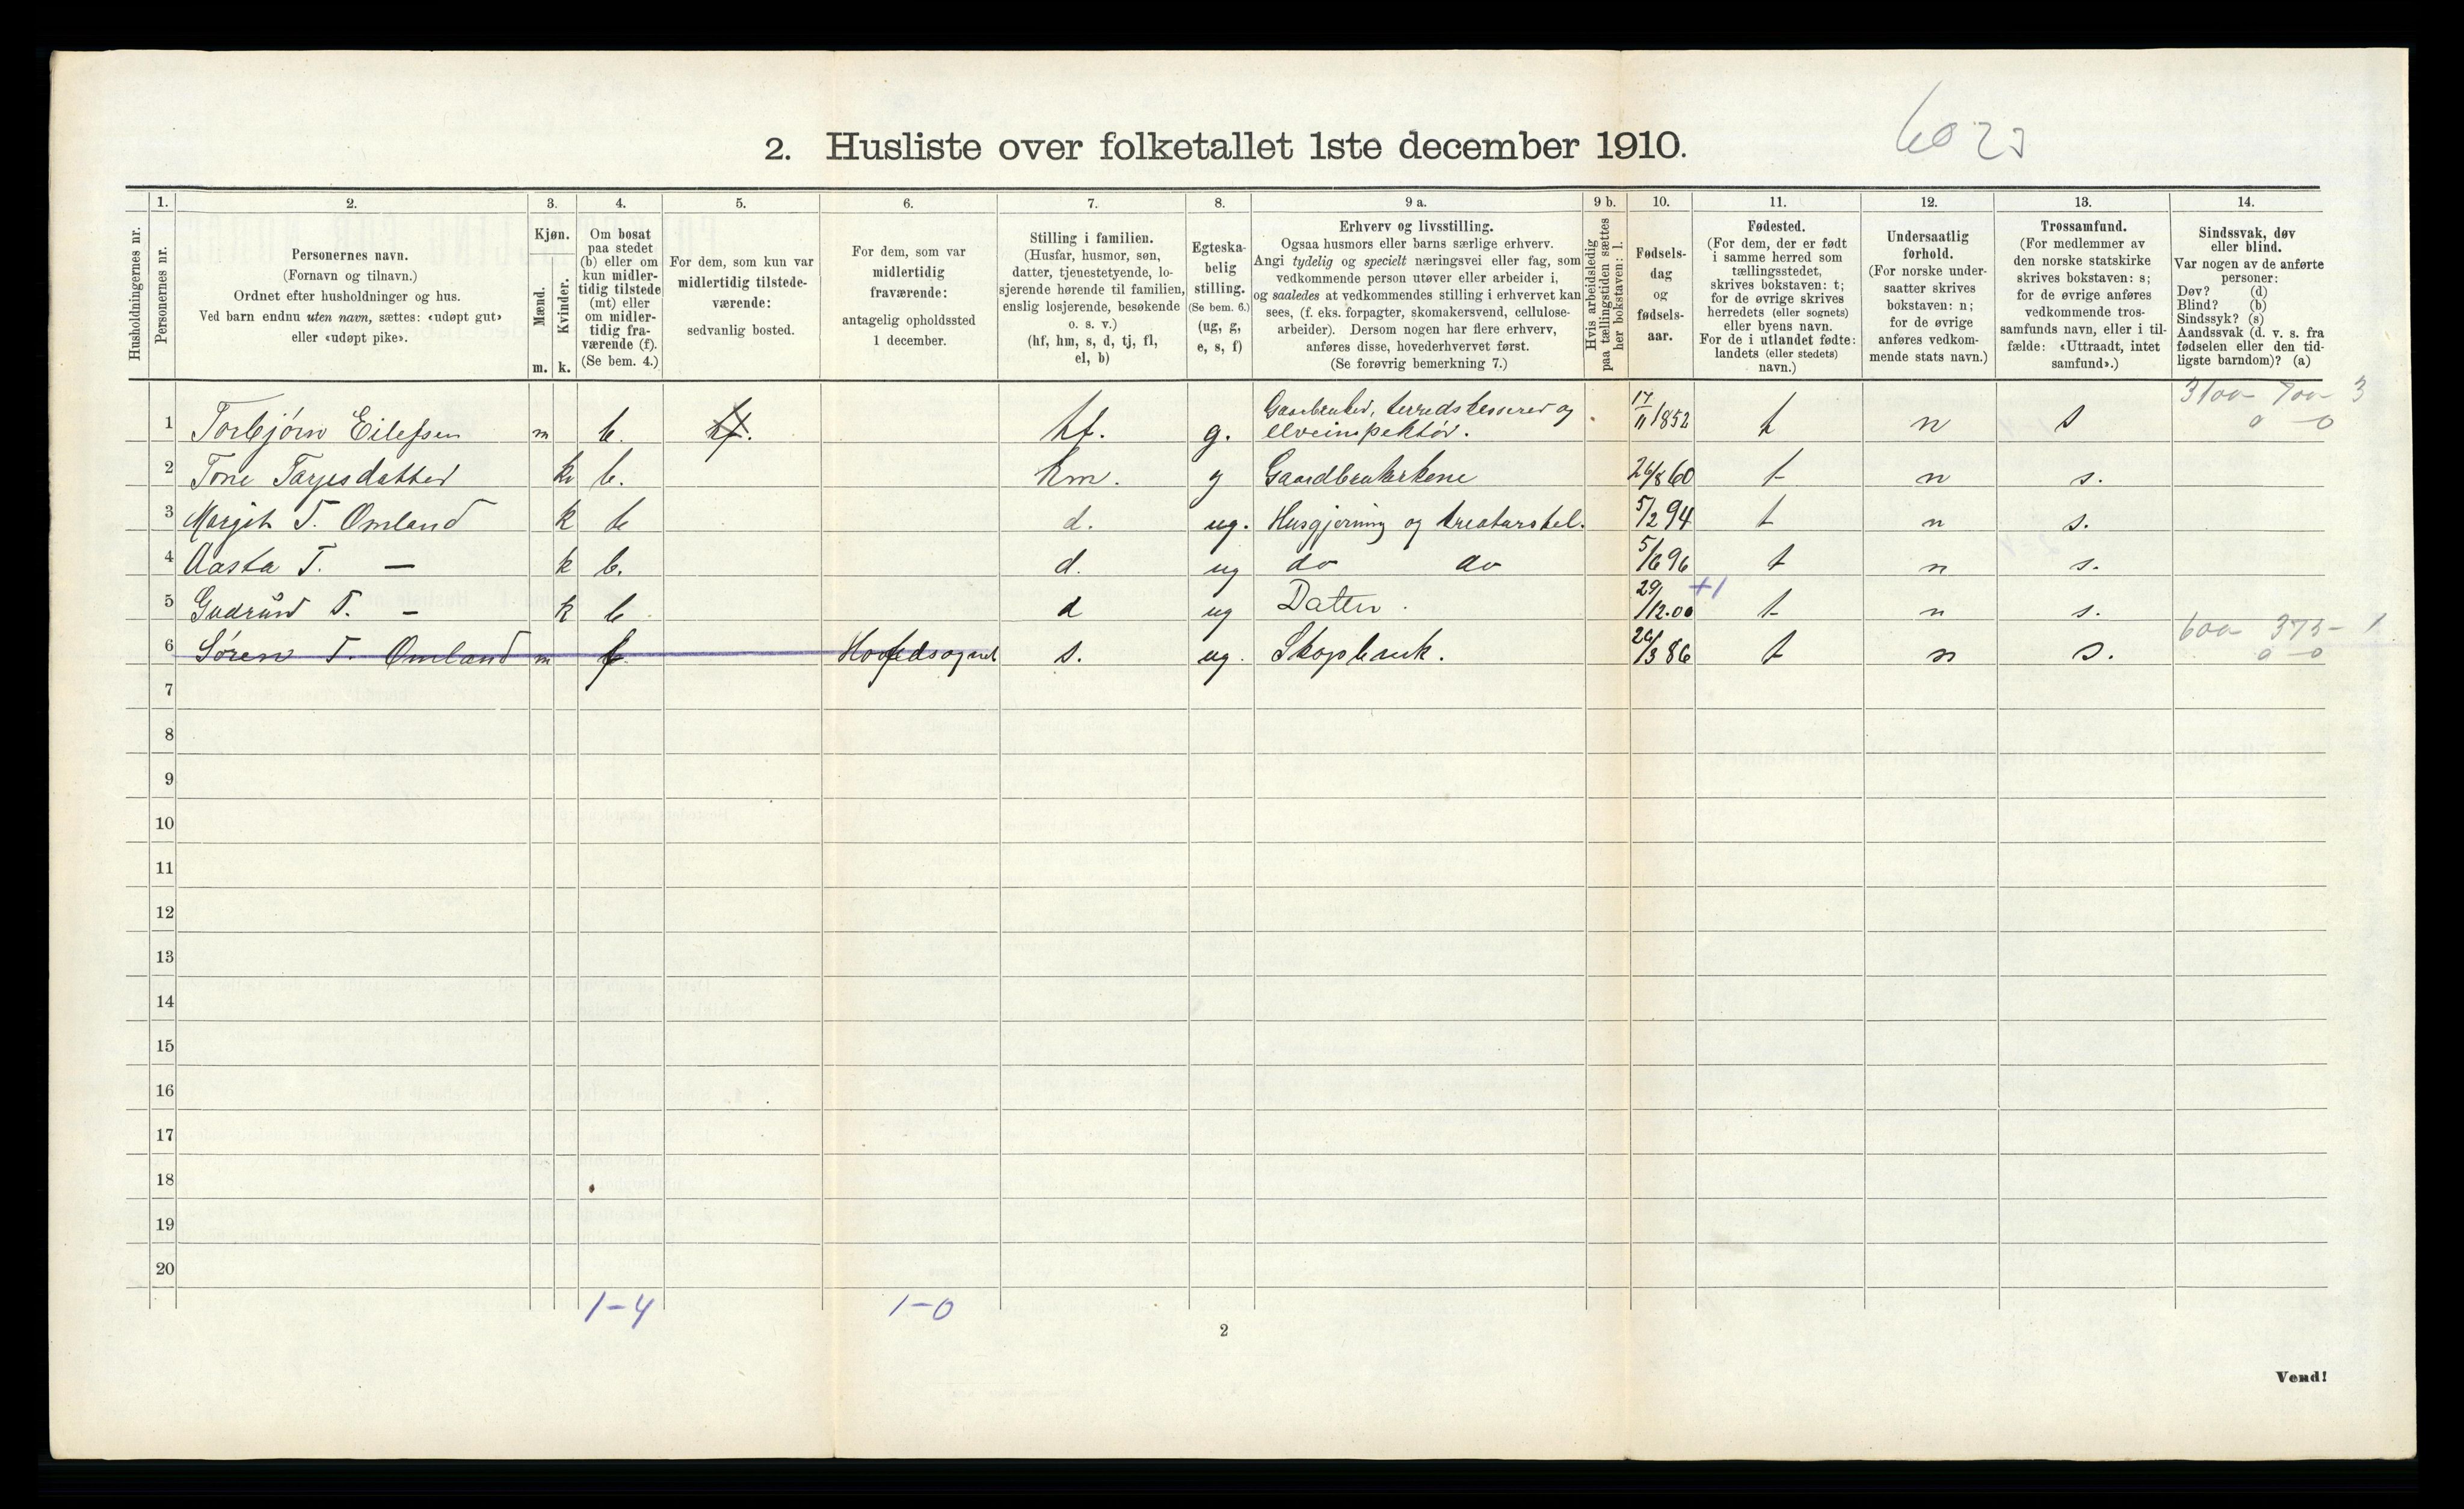 2. Husliste over folketallet 1ste december 1910.
1. 2. 3. 4. 5. 6. 7. 8. 9 a. 9 b. 10. 11. 12. 13. 14.
Husholdningernes nr.
Personernes nr.
Personernes navn.
(Fornavn og tilnavn.)
Ordnet efter husholdninger og hus.
Ved barn endnu uten navn, sættes: «udøpt gut»
eller «udøpt pike».
Kjøn.
Mænd.
Kvinder.
m. k.
Om bosat
paa stedet
(b) eller om
kun midler-
tidig tilstede
(mt) eller
om midler-
tidig fra-
værende (f).
(Se bem. 4.)
For dem, som kun var
midlertidig tilstede-
værende:
sedvanlig bosted.
For dem, som var
midlertidig
fraværende:
antagelig opholdssted
1 december.
Stilling i familien.
(Husfar, husmor, søn,
datter, tjenestetyende, lo-
sjerende hørende til familien,
enslig losjerende, besøkende
o. s. v.)
(hf, hm, s, d, tj, fl,
el, b)
Egteska-
belig
stilling.
(Se bem. 6.)
(ug, g,
e, s, f)
Erhverv og livsstilling.
Ogsaa husmors eller barns særlige erhverv.
Angi tydelig og specielt næringsvei eller fag, som
vedkommende person utøver eller arbeider i,
og saaledes at vedkommendes stilling i erhvervet kan
sees, (f. eks. forpagter, skomakersvend, cellulose-
arbeider). Dersom nogen har flere erhverv,
anføres disse, hovederhvervet først.
(Se forøvrig bemerkning 7.)
Hvis arbeidsledig
paa tællingstiden sættes
her bokstaven: l.
Fødsels-
dag
og
fødsels-
aar.
Fødested.
(For dem, der er født
i samme herred som
tællingsstedet,
skrives bokstaven: t;
for de øvrige skrives
herredets (eller sognets)
eller byens navn.
For de i utlandet fødte:
landets (eller stedets)
navn.)
Undersaatlig
forhold.
(For norske under-
saatter skrives
bokstaven: n;
for de øvrige
anføres vedkom-
mende stats navn.)
Trossamfund.
(For medlemmer av
den norske statskirke
skrives bokstaven: s;
for de øvrige anføres
vedkommende tros-
samfunds navn, eller i til-
fælde: «Uttraadt, intet
samfund».)
Sindssvak, døv
eller blind.
Var nogen av de anførte
personer:
Døv? (d)
Blind? (b)
Sindssyk? (s)
Aandssvak (d. v. s. fra
fødselen eller den tid-
ligste barndom)? (a)
3100 - 700 - 3
0 - 0
1 Torbjørn Eilefsen m b. hf. hf. g. Gaardbruker, herredskasserer og elveinspektør. 17/11 1852 t n s
2 Tone Tarjesdatter k b. hm. g Gaardbrukerkone 26/8 60 t n s.
3 Margit T. Omland k b d. ug. Husgjerning og kreaturstel. 5/2 94 t n s.
4 Aasta T. — k b. d. ug do do 5/6 96 t n s.
5 Gudrun T. — k b d ug Datter. 29/12.00 +1 t n s.
600 - 375 - 1
0 - 0
6 Søren T. Omland m f. Hovedsognet s. ug. Skogbruk. 26/3 86 t n s.
7
8
9
10
11
12
13
14
15
16
17
18
19
20
1-4 1-0
2
Vend!